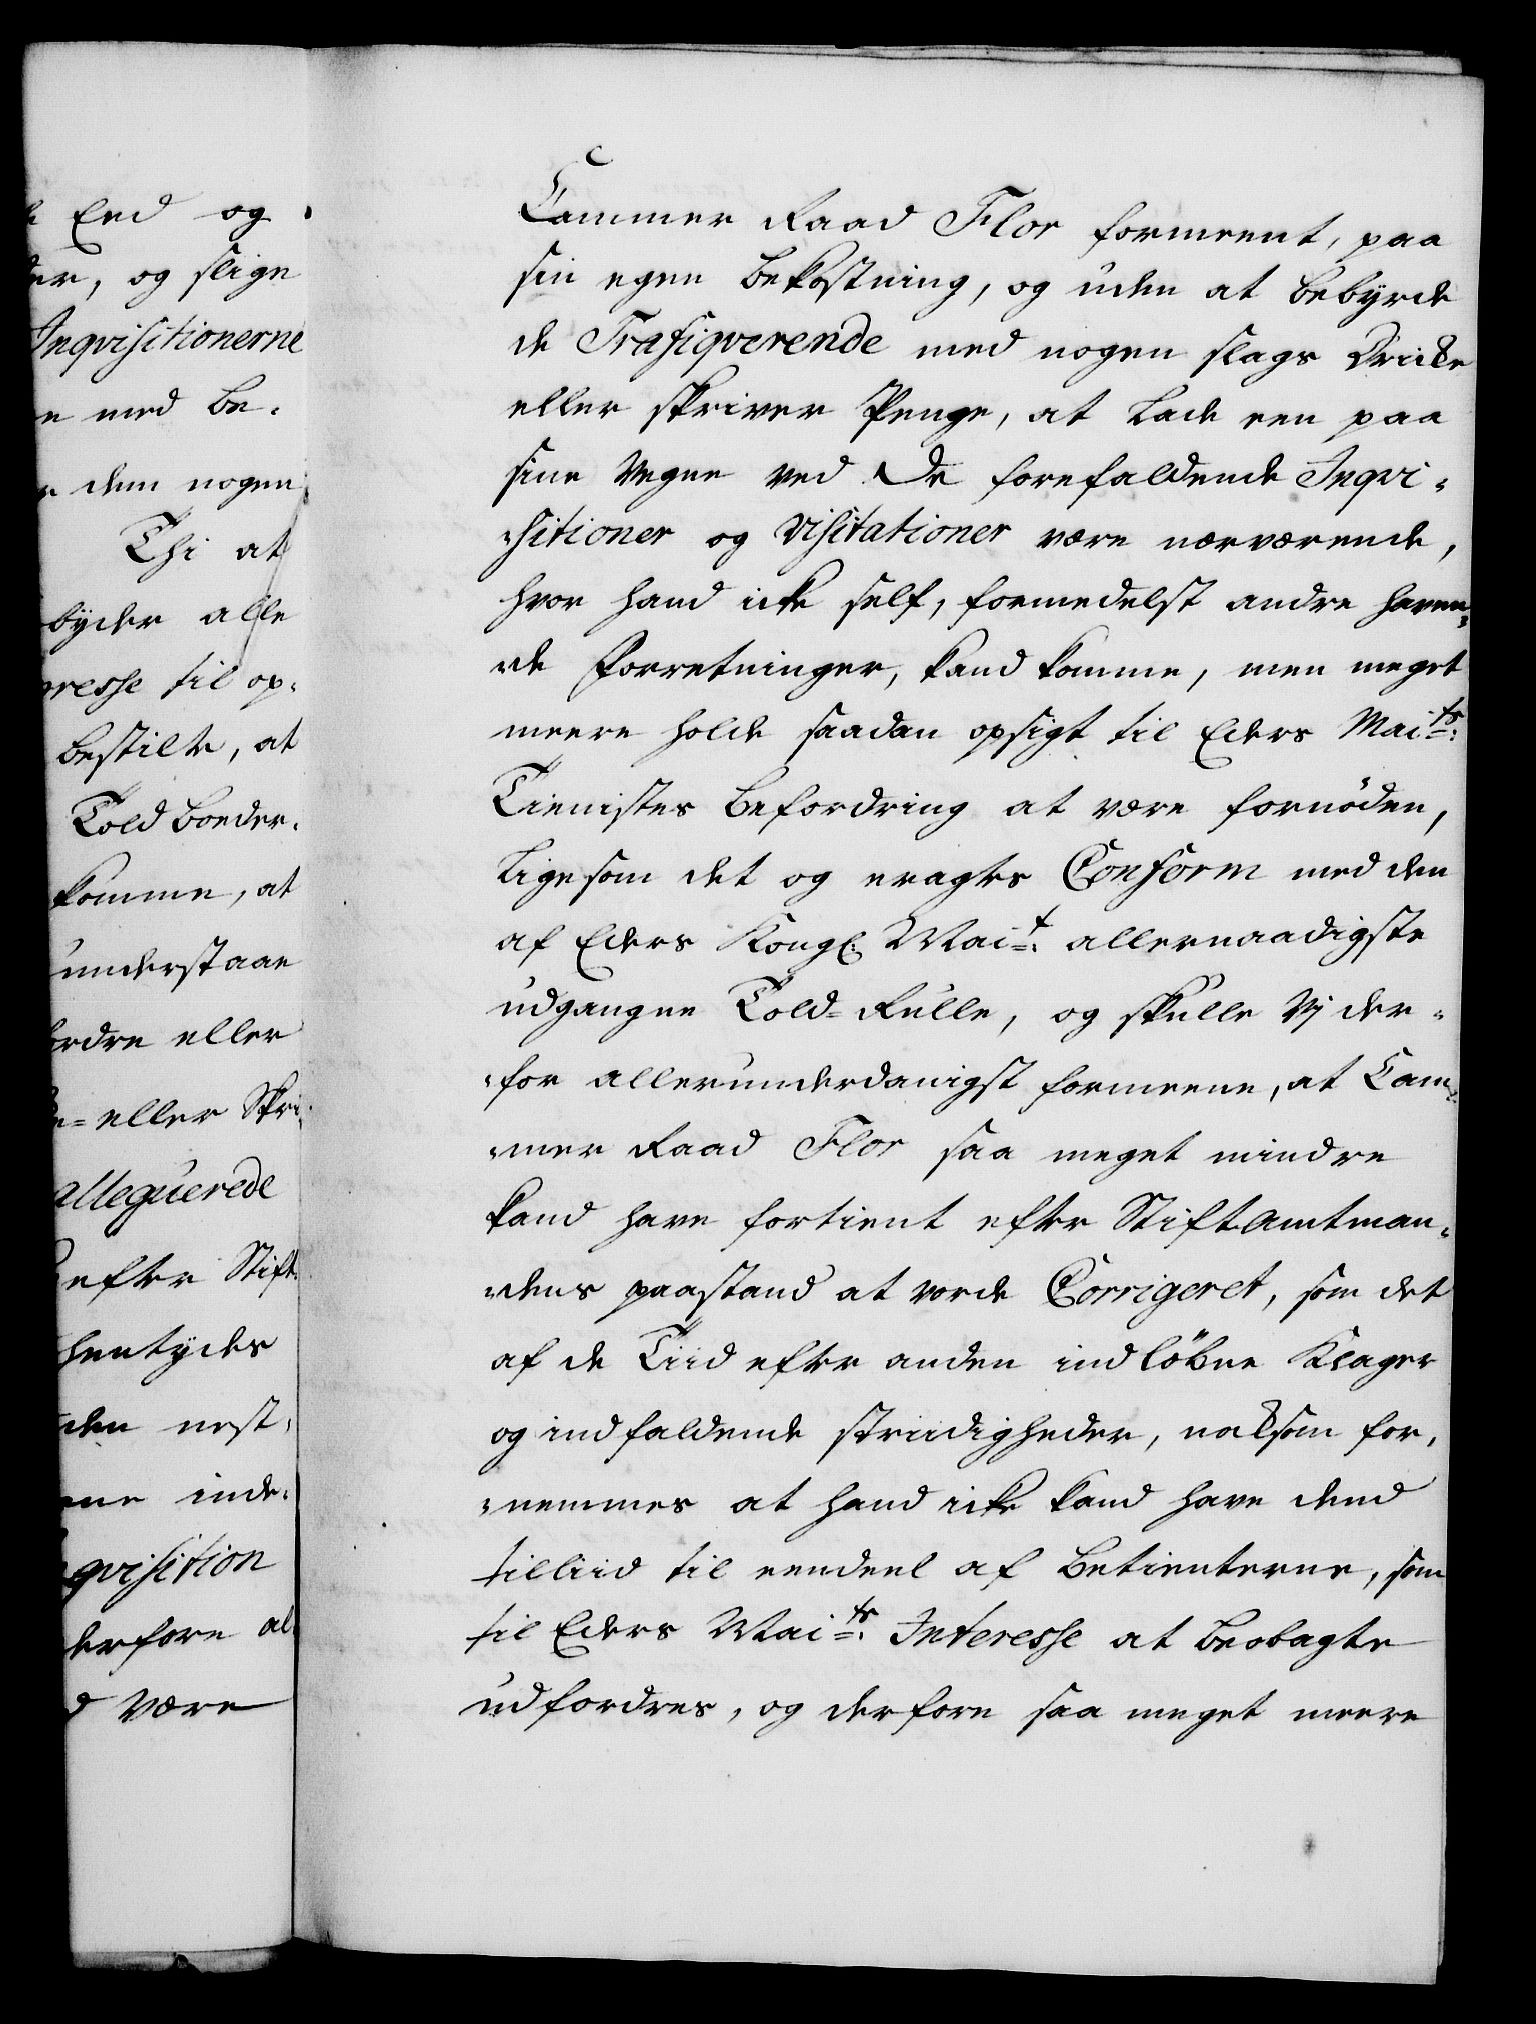 End og
er, og slige
Inqvisitionerne
med be-
dem nogen
Thi at
byder alle
resse til op-
bestilte, at
Told boeder-
komme, at
understaae
ordre eller
eller Skri-
alleguerede
efter Stift-
hentydes
den nest-
ne inde-
qvisition
derfore al-
Være
Cammer Raad Flor formeent, paa
sin egen bekostning, og uden at bebyrde
de Trafiqverende med nogen slags Dricke
eller skriver Penge, at lade een paa
sine Vegne ved de forefaldende Inqvi-
-sitioner og Visitationer være nærværende,
hvor hand icke self, formedelst andre haven-
-de Forretninger, kand komme, men meget
meere holde saadan opsigt til Eders Maits:
Tienistes befordring at være fornöden,
ligesom det og eragtes Conform med den
af Eders Kongl: Mait: allernaadigste
udgangne Told-Rulle, og skulle Vj der-
-for allerunderdanigst formeene, at Cam-
-mer Raad Flor saa meget mindre
kand have fortient efter Stiftamtman-
-dens paastand at vorde Corrigeret, som det
af de Tiid efter anden indlöbne Klager
og indfaldende striidigheder, noksom for-
-nemmes at hand icke kand have dend
tilliid til eendeel af betienterne, som
til Eders Maits: Interesse at beobagte
udfordres, og derfore saa meget meere